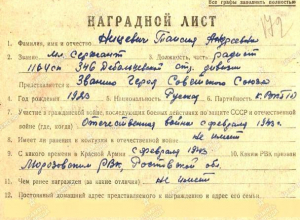 Все графы заполнять полностью
НАГРАДНОЙ ЛИСТ
1. Фамилия, имя и отчество
Андреевич
2. Звание Мл. Сержант 3. Должность, часть радист
346 Дебальцевской стр. дивизии
Представляется к Званию Героя Советского Союза
4. Год рождения 1923 5. Национальность Русский 6. Партийность
7. Участие в гражданской войне, последующих боевых действиях по защите СССР и отечественной
войне (где, когда) Отечественная война с февраля 1943 г.
8. Имеет ли ранения и контузии в отечественной войне не имеет
9. С какого времени в Красной Армии с февраля 1943 10. Каким РВК призван
Морозовским РВК, Ростовской обл.
11. Чем ранее награжден (за какие отличия) не имеет
12. Постоянный домашний адрес представляемого к награждению и адрес его семьи